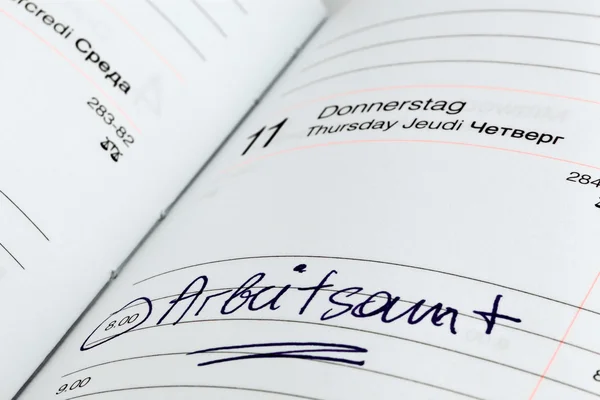 Mercredi Среда
283-82
Donnerstag
11 Thursday Jeudi Четверг
284
8.00 Arbeitsamt
9.00